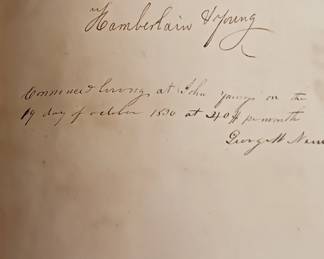 Hamberlain & Young
Commenced living at John Youngs on the
19 day of october 1850 at 20 $ per month
George H